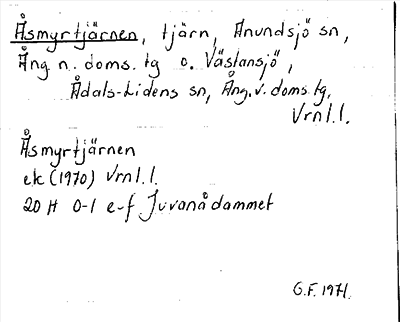 Åsmyrtjärnen, tjärn, Anundsjö sn,
Ång. n. doms. tg o. Västansjö,
Ådals-Lidens sn, Ång. v. doms. tg.
Vrnl.l.
Åsmyrtjärnen
ek (1970) Vrnl.l.
20 H 0-1 e-f Juvanådammet
G.F. 1971.